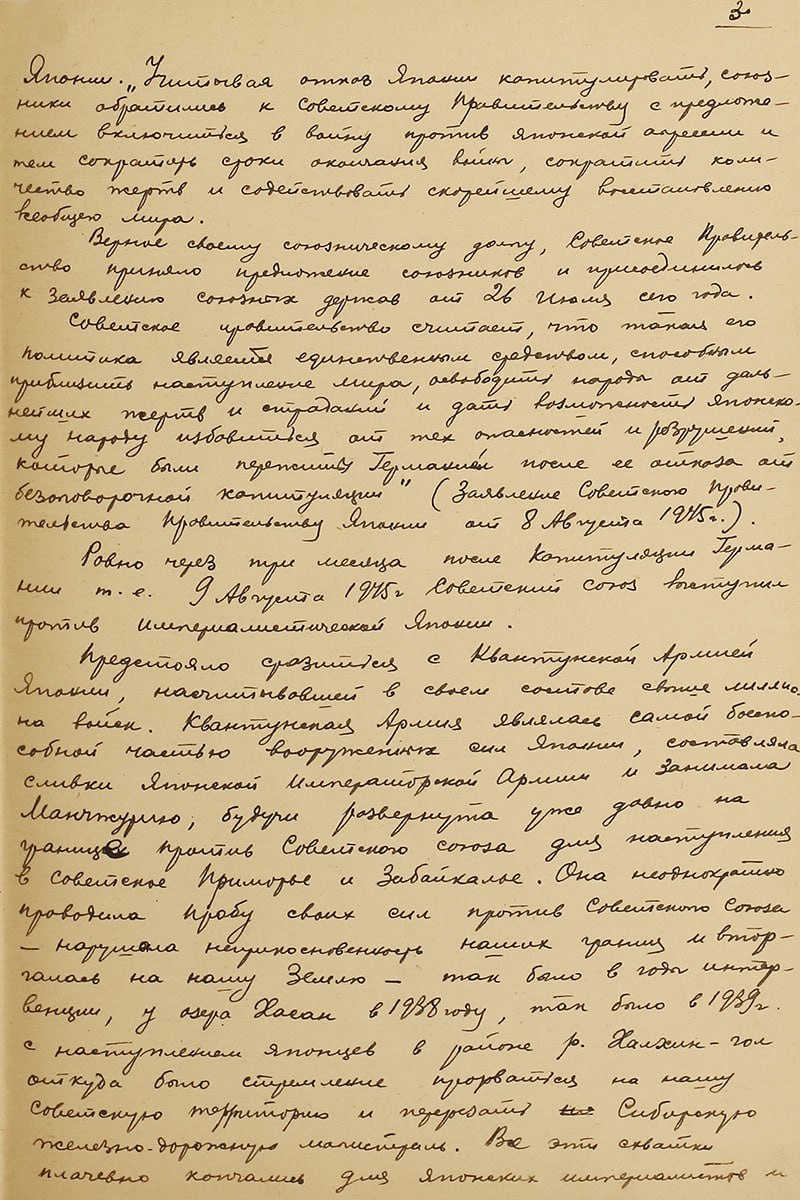 3
Японии. „Учитывая отказ Японии капитулировать, союз-
ники обратились к Советскому Правительству с предложе-
нием включиться в войну против японской агрессии и
тем сократить сроки окончания войны, сократить коли-
чество жертв и содействовать скорейшему восстановлению
всеобщего мира.
Верное своему союзническому долгу, Советское Правитель-
ство приняло предложение союзников и присоединилось
к Заявлению союзных держав от 26 Июля сего года.
Советское правительство считает, что такая его
политика является единственным средством, способным
приблизить наступление мира, освободить народы от даль-
нейших жертв и страданий и дать возможность Японско-
му народу избавиться от тех опасностей и разрушений,
которые были пережиты Германией после ее отказа от
безоговорочной капитуляции" (Заявление Советского Прави-
тельства Правительству Японии от 8 Августа 1945г.).
Ровно через три месяца после капитуляции Герма-
нии т.е. 9 Августа 1945г Советский Союз выступил
против Империалистической Японии.
Предстояло сразиться с Квантунской Армией
Японии, насчитывавшей в своем составе свыше миллио-
на войск. Квантунская Армия являлась самой боеспо-
собной частью вооруженных сил Японии, составляла
сливки Японской Императорской Армии и занимала
Манчжурию, будучи развернута уже давно на
границе против Советского Союза для наступления
в Советское Приморье и Забайкалье. Она неоднократно
проводила пробу своих сил против Советского Союза
— нарушала неприкосновенность наших границ и втор-
галась на нашу Землю — так было в годы интер-
венции, у озера Хасан в 1938 году, так было в 1939г.
с наступлением японцев в районе р. Халхин-гол
откуда было стремление прорваться на нашу
Советскую территорию и перерезать Сибирскую
железно-дорожную магистраль. Все эти схватки
плачевно кончались для японских империалистов и